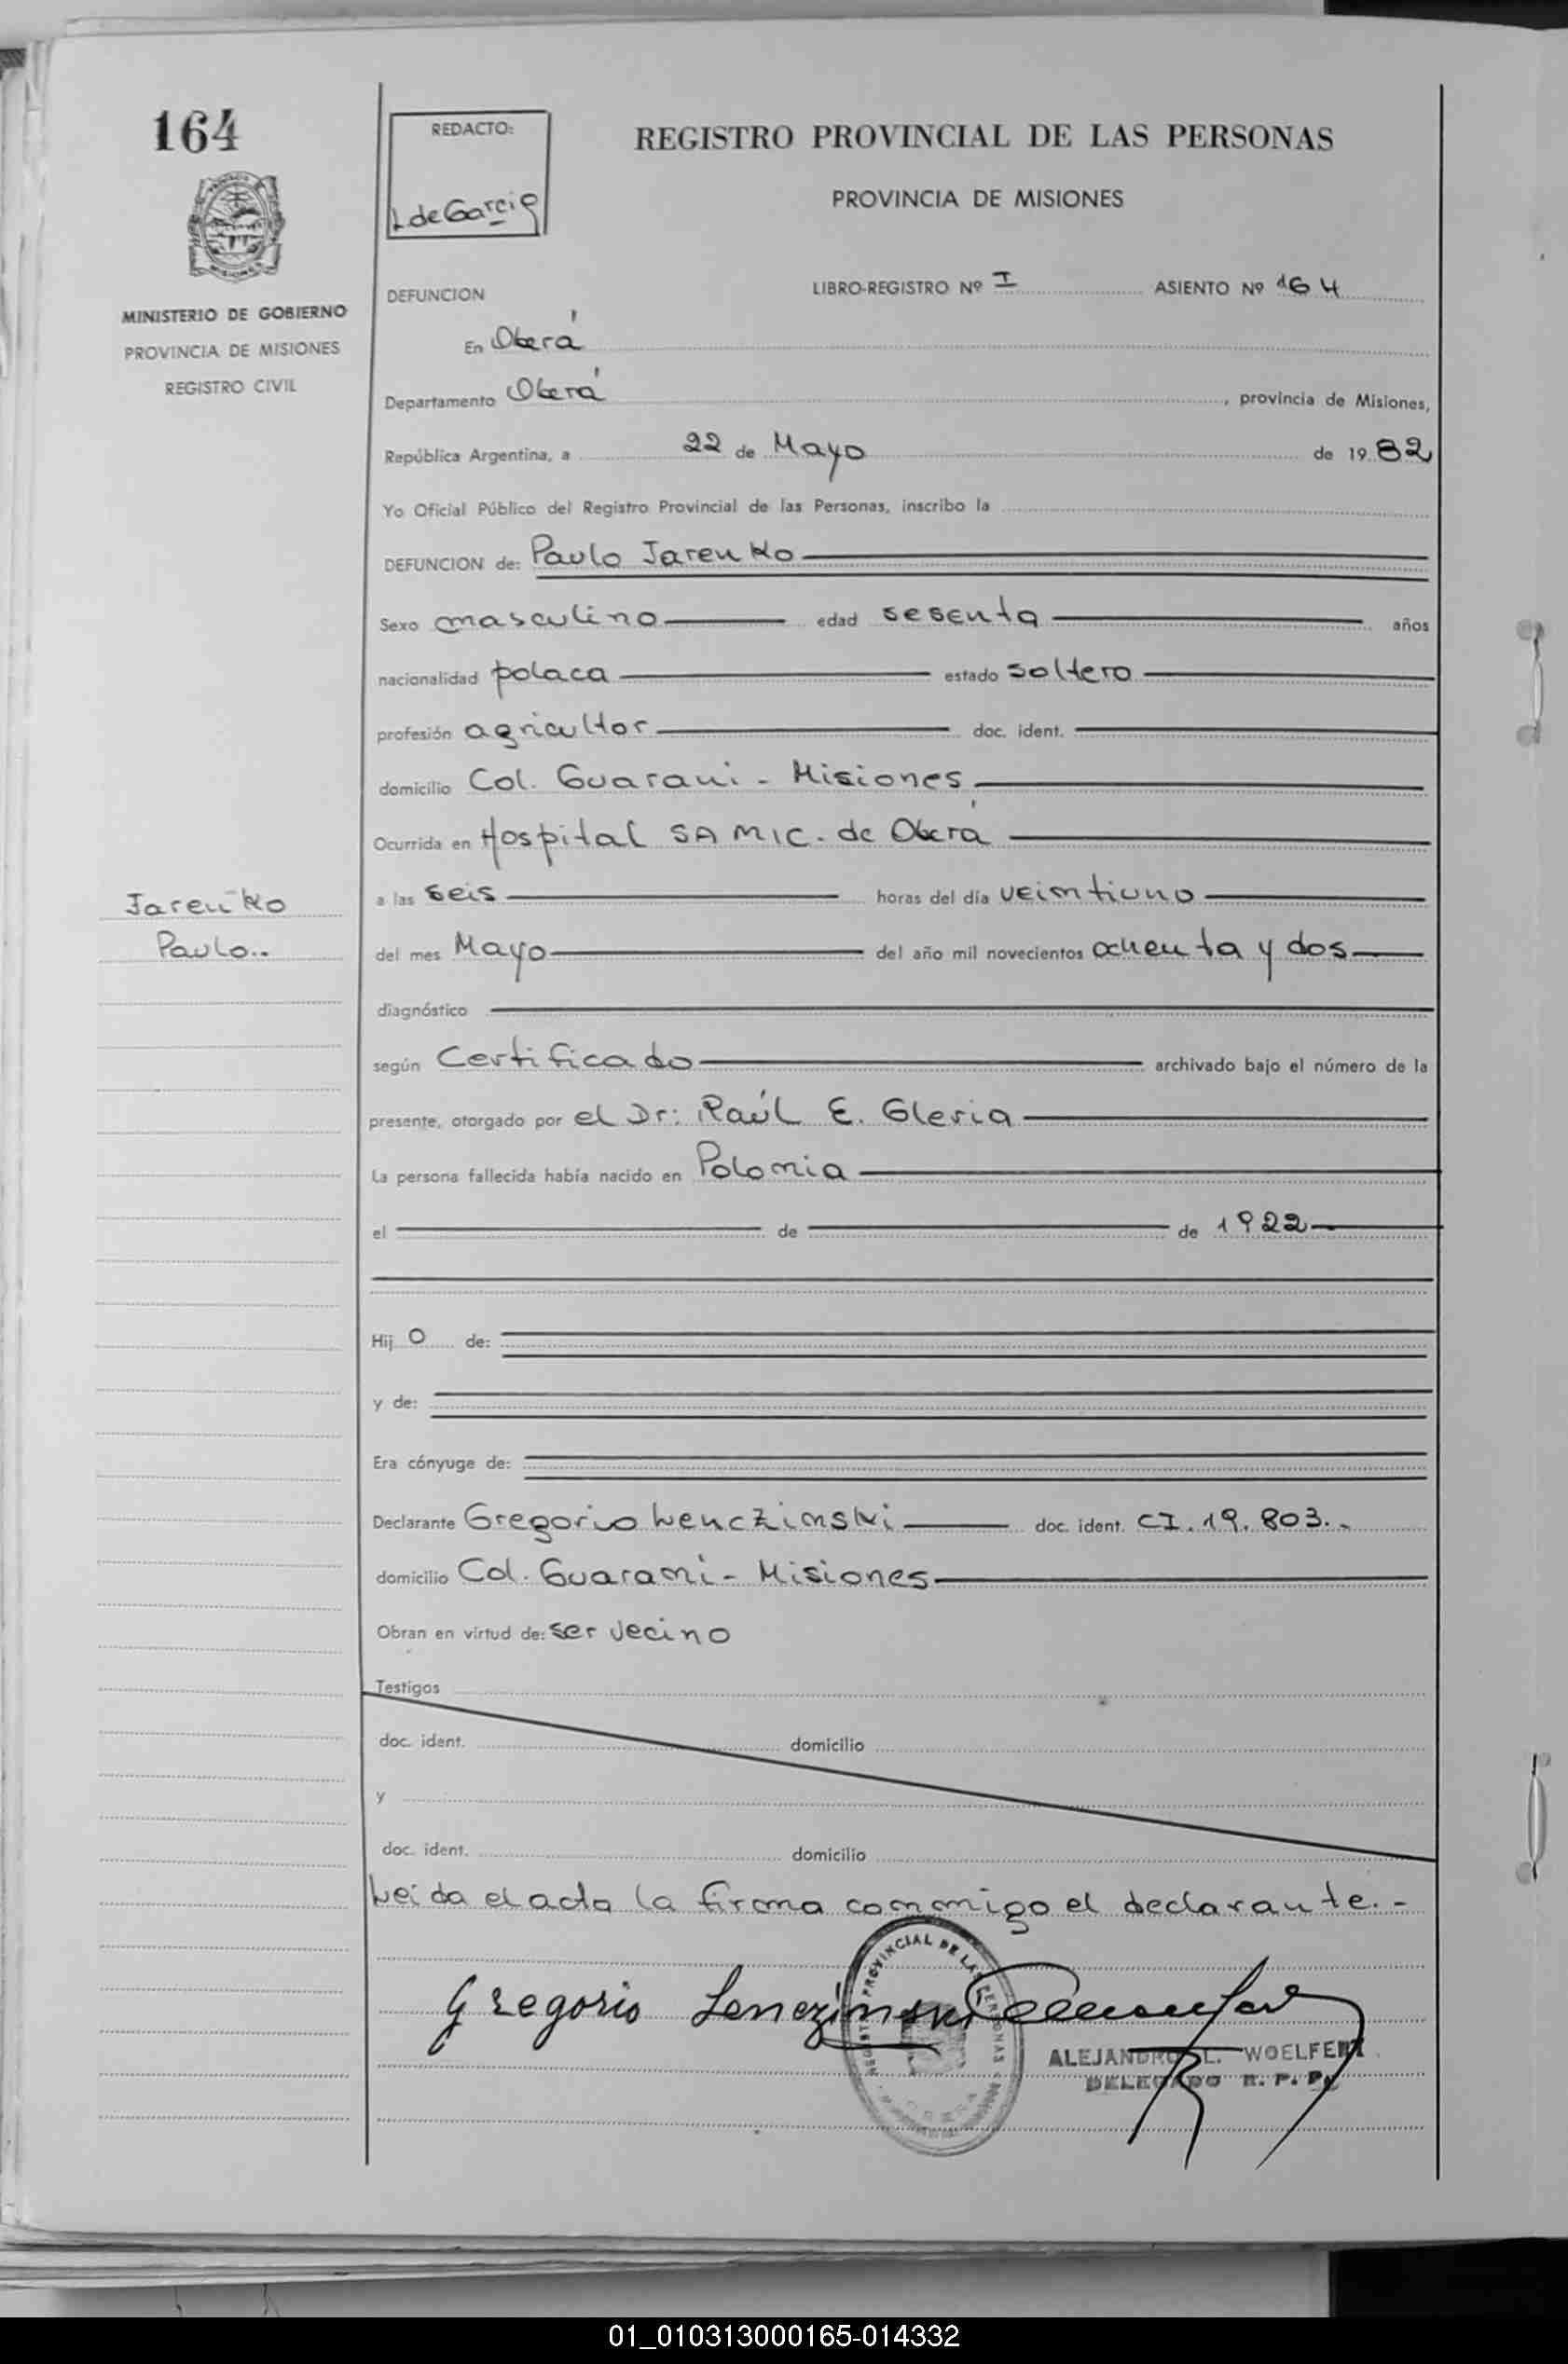 164
REDACTO:
L de Garcia
REGISTRO PROVINCIAL DE LAS PERSONAS
PROVINCIA DE MISIONES
MINISTERIO DE GOBIERNO
PROVINCIA DE MISIONES
REGISTRO CIVIL
DEFUNCION LIBRO-REGISTRO Nº I ASIENTO Nº 164
En Oberá
Departamento Oberá, provincia de Misiones,
República Argentina, a 22 de Mayo de 1982
Yo Oficial Público del Registro Provincial de las Personas, inscribo la
DEFUNCION de: Paulo Jarenko
Sexo masculino edad sesenta años
nacionalidad polaca estado soltero
profesión agricultor doc. ident.
domicilio Col. Guarani - Misiones
Ocurrida en Hospital SAMIC. de Oberá
Jarenko
Paulo..
a las seis horas del día veintiuno
del mes Mayo del año mil novecientos ochenta y dos
diagnóstico
según Certificado archivado bajo el número de la
presente, otorgado por el Dr: Raúl E. Gleria
La persona fallecida había nacido en Polonia
el de de 1922
Hijo de:
y de:
Era cónyuge de:
Declarante Gregorio Lenczinski doc. ident. CI. 19. 803.-
domicilio Col. Guarani - Misiones
Obran en virtud de: ser vecino
Testigos
doc. ident. domicilio
y
doc. ident. domicilio
Leida el acta la firma conmigo el declarante.-
Gregorio Lenezinski
PROVINCIAL DE LAS PERSONAS
ALEJANDRO L. WOELFERT
DELEGADO R. P. P.
01_010313000165-014332